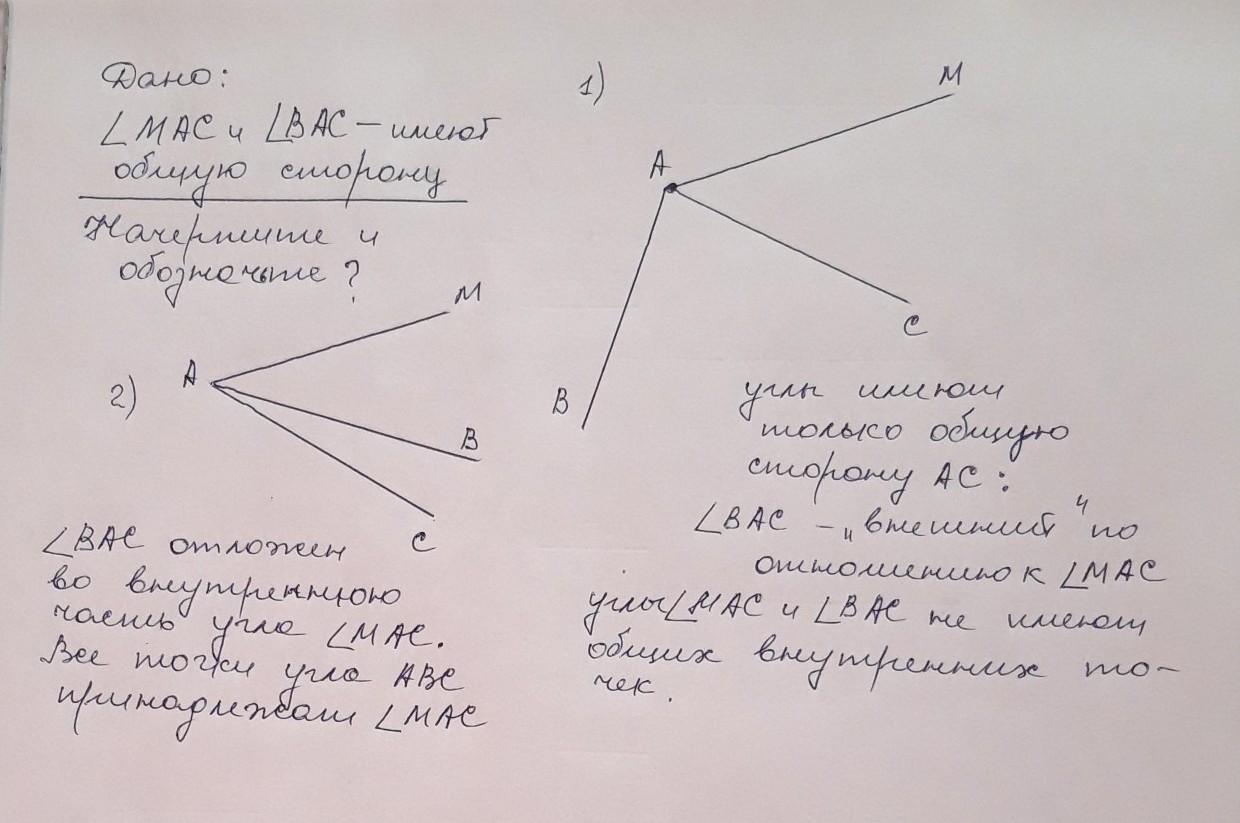 Дано:
∠MAC и ∠BAC – имеют
общую сторону
Начертите и
обозначьте ?
1)
M
A
C
B
углы имеют
только общую
сторону AC:
∠BAC – „внешний“ по
отношению к ∠MAC
углы ∠MAC и ∠BAC не имеют
общих внутренних то-
чек.
2)
M
A
B
C
∠BAC отложен
во внутреннюю
часть угла ∠MAC.
Все точки угла ABC
принадлежат ∠MAC